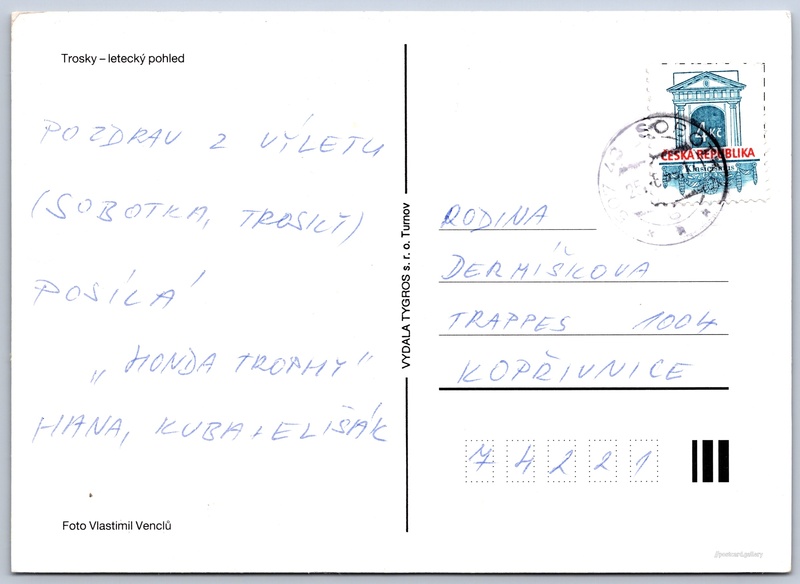 Trosky – letecký pohled
POZDRAV Z VÝLETU
(SOBOTKA, TROSKY)
POSÍLÁ
„HONDA TROPHY"
HANA, KUBA + ELIŠÁK
Foto Vlastimil Venclů
VYDALA TYGROS s. r. o. Turnov
4 Kč
ČESKÁ REPUBLIKA
RODINA
DERMIŠKOVA
TRAPPES 1004
KOPŘIVNICE
74221